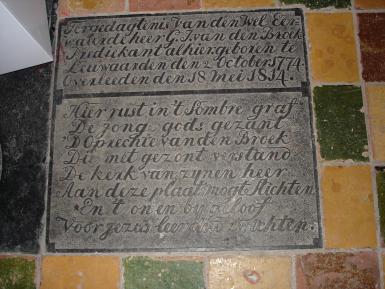 Ter gedagtenis Van den Wel Eer
waerde heer G.J. van den Broek
Predikant alhier geboren te
Leuwaarden den 2 October 1774
Overleeden den 18 Mei 1814.
Hier rust in't Sombre graf
De Jong gods gezant
D Oprechte van den Broek
Die met gezont verstand
De kerk van zynen heer
Aan deze plaat mogt Stichten
En't on en bygeloof
Voor jezus leer dee zwichten.